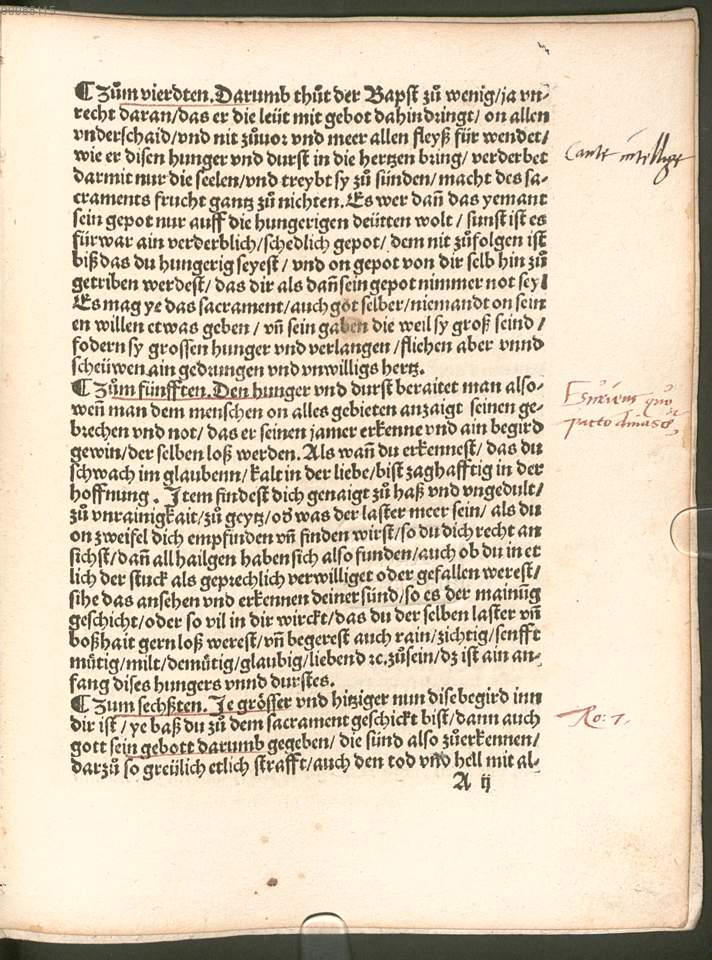 ¶ Zům vierdten. Darumb thůt der Bapst zů wenig/ja vn-
recht daran/das er die leüt mit gebot dahindringt/ on allen
vnderschaid/vnd nit zůuor vnd meer allen fleyß für wendet/
wie er disen hunger vnd durst in die hertzen bring/ verderbet
darmit nur die seelen/vnd treybt sy zů sünden/ macht des sa-
craments frucht gantz zů nichten. Es wer dañ das yemant
sein gepot nur auff die hungerigen deütten wolt / sunst ist es
fürwar ain verderblich/schedlich gepot/ dem nit zůfolgen ist
biß das du hungerig seyest / vnd on gepot von dir selb hin zů
getriben werdest/ das dir als dañ sein gepot nimmer not sey/
Es mag ye das sacrament/auch got selber/niemandt on sein
en willen etwas geben / vñ sein gaben die weil sy groß seind /
fodern sy grossen hunger vnd verlangen /fliehen aber vnnd
scheüwen ain gedrungen vnd vnwilligs hertz.
¶ Zům fünfften. Den hunger vnd durst beraitet man also-
weñ man dem menschen on alles gebieten anzaigt seinen ge-
brechen vnd not/das er seinen jamer erkenne vnd ain begird
gewin/der selben loß werden. Als wañ du erkennest/ das du
schwach im glaubenn/kalt in der liebe/bist zaghafftig in der
hoffnung. Item findest dich genaigt zů haß vnd vngedult/
zů vnrainigkait/zů geytz/od̛ was der laster meer sein/ als du
on zweifel dich empfinden vñ finden wirst/so du dich recht an
sichst/dañ all hailgen haben sich also funden/auch ob du in et
lich der stuck als geprechlich verwilliget oder gefallen werest/
sihe das ansehen vnd erkennen deiner sünd/so es der mainũg
geschicht/oder so vil in dir wirckt/das du der selben laster vñ
boßhait gern loß werest/vñ begerest auch rain/zichtig/senfft
mütig/milt/demütig/glaubig/liebend ꝛc. zůsein/dz ist ain an-
fang dises hungers vnnd durstes.
¶ Zum sechßten. Je grösser vnd hitziger nun dise begird inn
dir ist / ye baß du zů dem sacrament geschickt bist/dann auch
gott sein gebott darumb gegeben/ die sünd also zůerkennen/
darzů so greülich etlich strafft/auch den tod vnd hell mit al-
A ij
Caute intellige
Esuriens quo
pacto
Ro: 7.